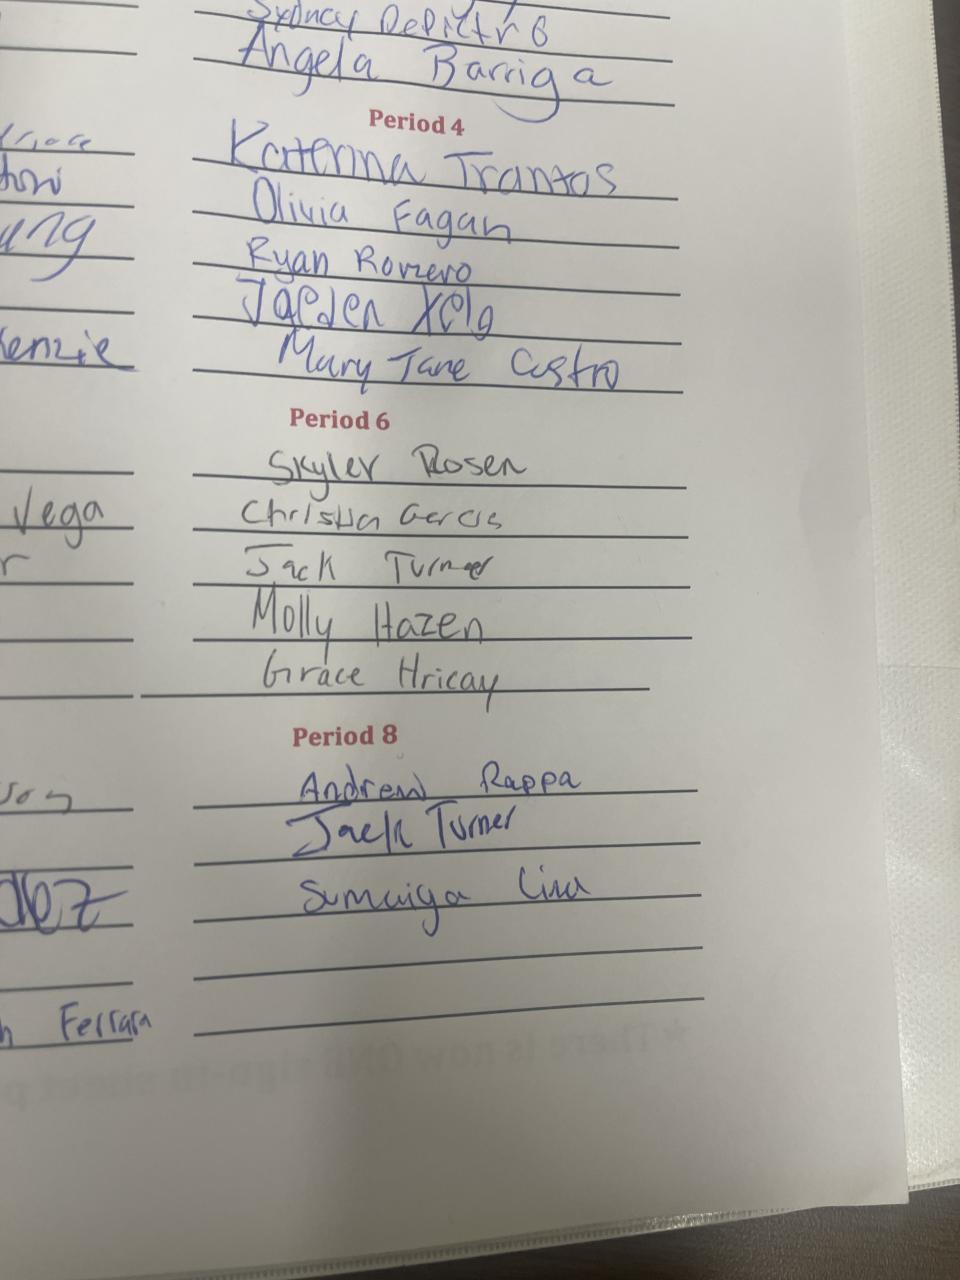 Sydney
Angela Barriga
Period 4
Katerina Trantos
Olivia Fagan
Ryan Romero
Jaeden Xelo
Mary Jane Castro
Kenzie
Period 6
Skyler Rosen
Vega
Christian Garcia
Jack Turner
Molly Hazen
Grace Hricay
Period 8
Andrew Rappa
Jack Turner
Sumaiya
Ferrara